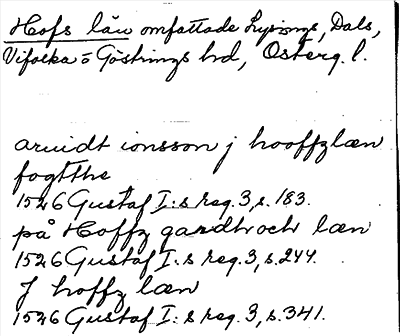 Hofs län omfattade Lysings, Dals,
Vifolka o Göstrings hd, Österg. l.
aruidt ionsson j hooffzlæn
fogtthe
1526 Gustaf I:s reg. 3, s. 183.
på Hoffz gardh och læn
1526 Gustaf I:s reg. 3, s. 244.
J hoffz læn
1526 Gustaf I:s reg. 3, s. 341.